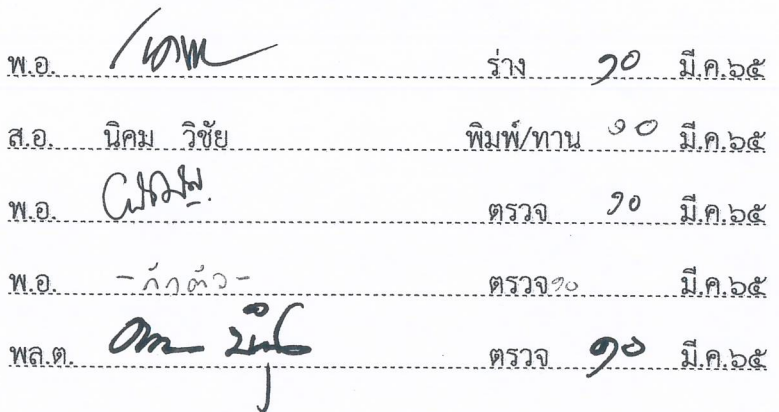 พ.อ. ร่าง ๑๐ มี.ค.๖๕
ส.อ. นิคม วิชัย พิมพ์/ทาน ๑๐ มี.ค.๖๕
พ.อ. ตรวจ ๑๐ มี.ค.๖๕
พ.อ. - กักตัว - ตรวจ ๑๐ มี.ค.๖๕
พล.ต. ตรวจ ๑๐ มี.ค.๖๕